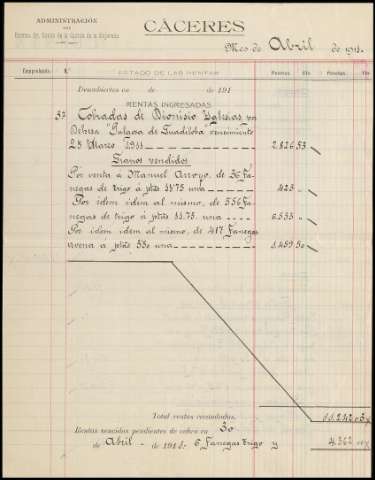 ADMINISTRACIÓN
DEL
CÁCERES
Mes de Abril de 191
Comprobante N.º ESTADO DE LAS RENTAS Pesetas Cts Pesetas Cts
Devengadas en de de 191
RENTAS INGRESADAS
Cobradas de Dionisio Yglesias
Dehesa "Palacio de Guadiloba" vencimiento
25 Marzo 1911 2.826 53
Granos vendidos
Por venta á Manuel Arroyo, de 36 Fa-
negas de trigo á ptas 11'75 una 423
Por idem idem al mismo, de 556 Fa-
negas de trigo á ptas 11.75 una 6.533
Por idem idem al mismo, de 417 Fanegas
avena a ptas una 1.459 50
Total rentas recaudadas. 11.242 03
Rentas vencidas pendientes de cobro en 30
de Abril de 191 6 Fanegas trigo y 4.362